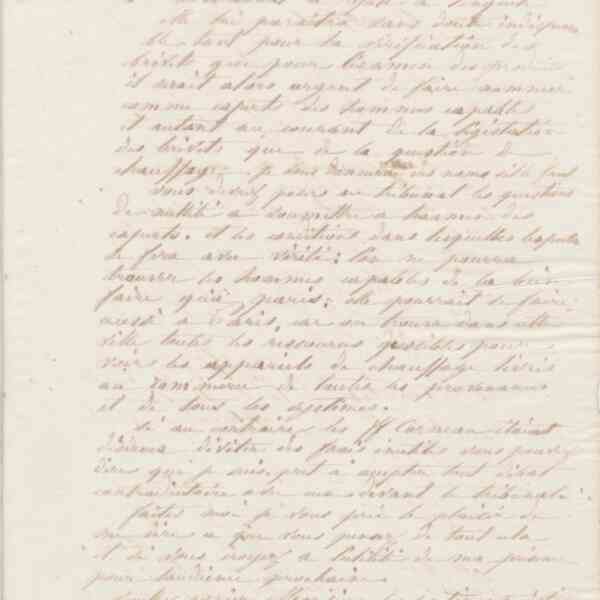 elle lui paraitra sans doute indispensa
ble tant pour la vérification des
brevets que pour l'examen des
il serait alors urgent de faire nommer
comme experts des hommes capables
et autant au courant de la législation
des brevets que de la question de
chauffage, je vous donnerai des noms s'il le faut
vous devez poser au tribunal les questions
de nullité à soumettre à l'examen des
experts. et les conditions dans lesquelles l'expertise
se fera avec vérité: l'on ne pourra
trouver les hommes capables de la bien
faire qu'à paris; elle pourrait se faire
aussi à Paris, car on trouve dans cette
ville toutes les ressources possibles pour
voir les appareils de chauffage livrés
au commerce de toutes les provenances
et de tous les systèmes.
Si au contraire les ff Corneau étaient
désireux d'éviter des frais inutiles vous pouvez
dire que je suis prêt à accepter tout débat
contradictoire avec eux devant le tribunal.
faites moi je vous prie le plaisir de
me dire ce que vous pensez de tout cela
et si vous croyez à l'utilité de ma présence
pour l'audience prochaine.